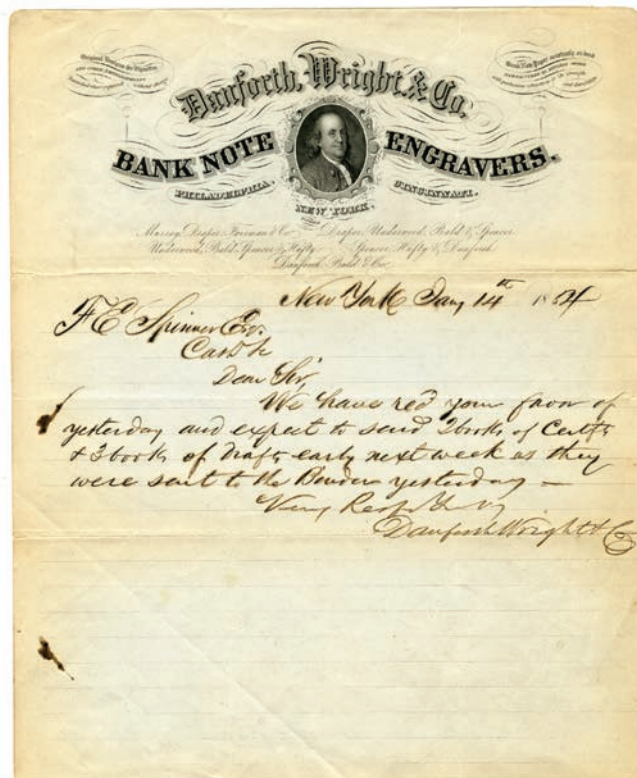 Danforth, Wright, & Co.
BANK NOTE ENGRAVERS.
PHILADELPHIA. CINCINNATI.
NEW YORK.
Murray, Draper, Fairman & Co. Draper, Underwood, Bald & Spencer
Underwood, Bald, Spencer & Hufty Spencer, Hufty & Danforth
Danforth, Bald & Co.
New York Jany 14th 1854
F E Spinner Esq.
Cash
Dear Sir,
We have recd your favor of
yesterday and expect to send 2 books of Certfs
& 3 books of Drafts early next week as they
were sent to the Binder yesterday —
Very Respy
Danforth Wright & Co